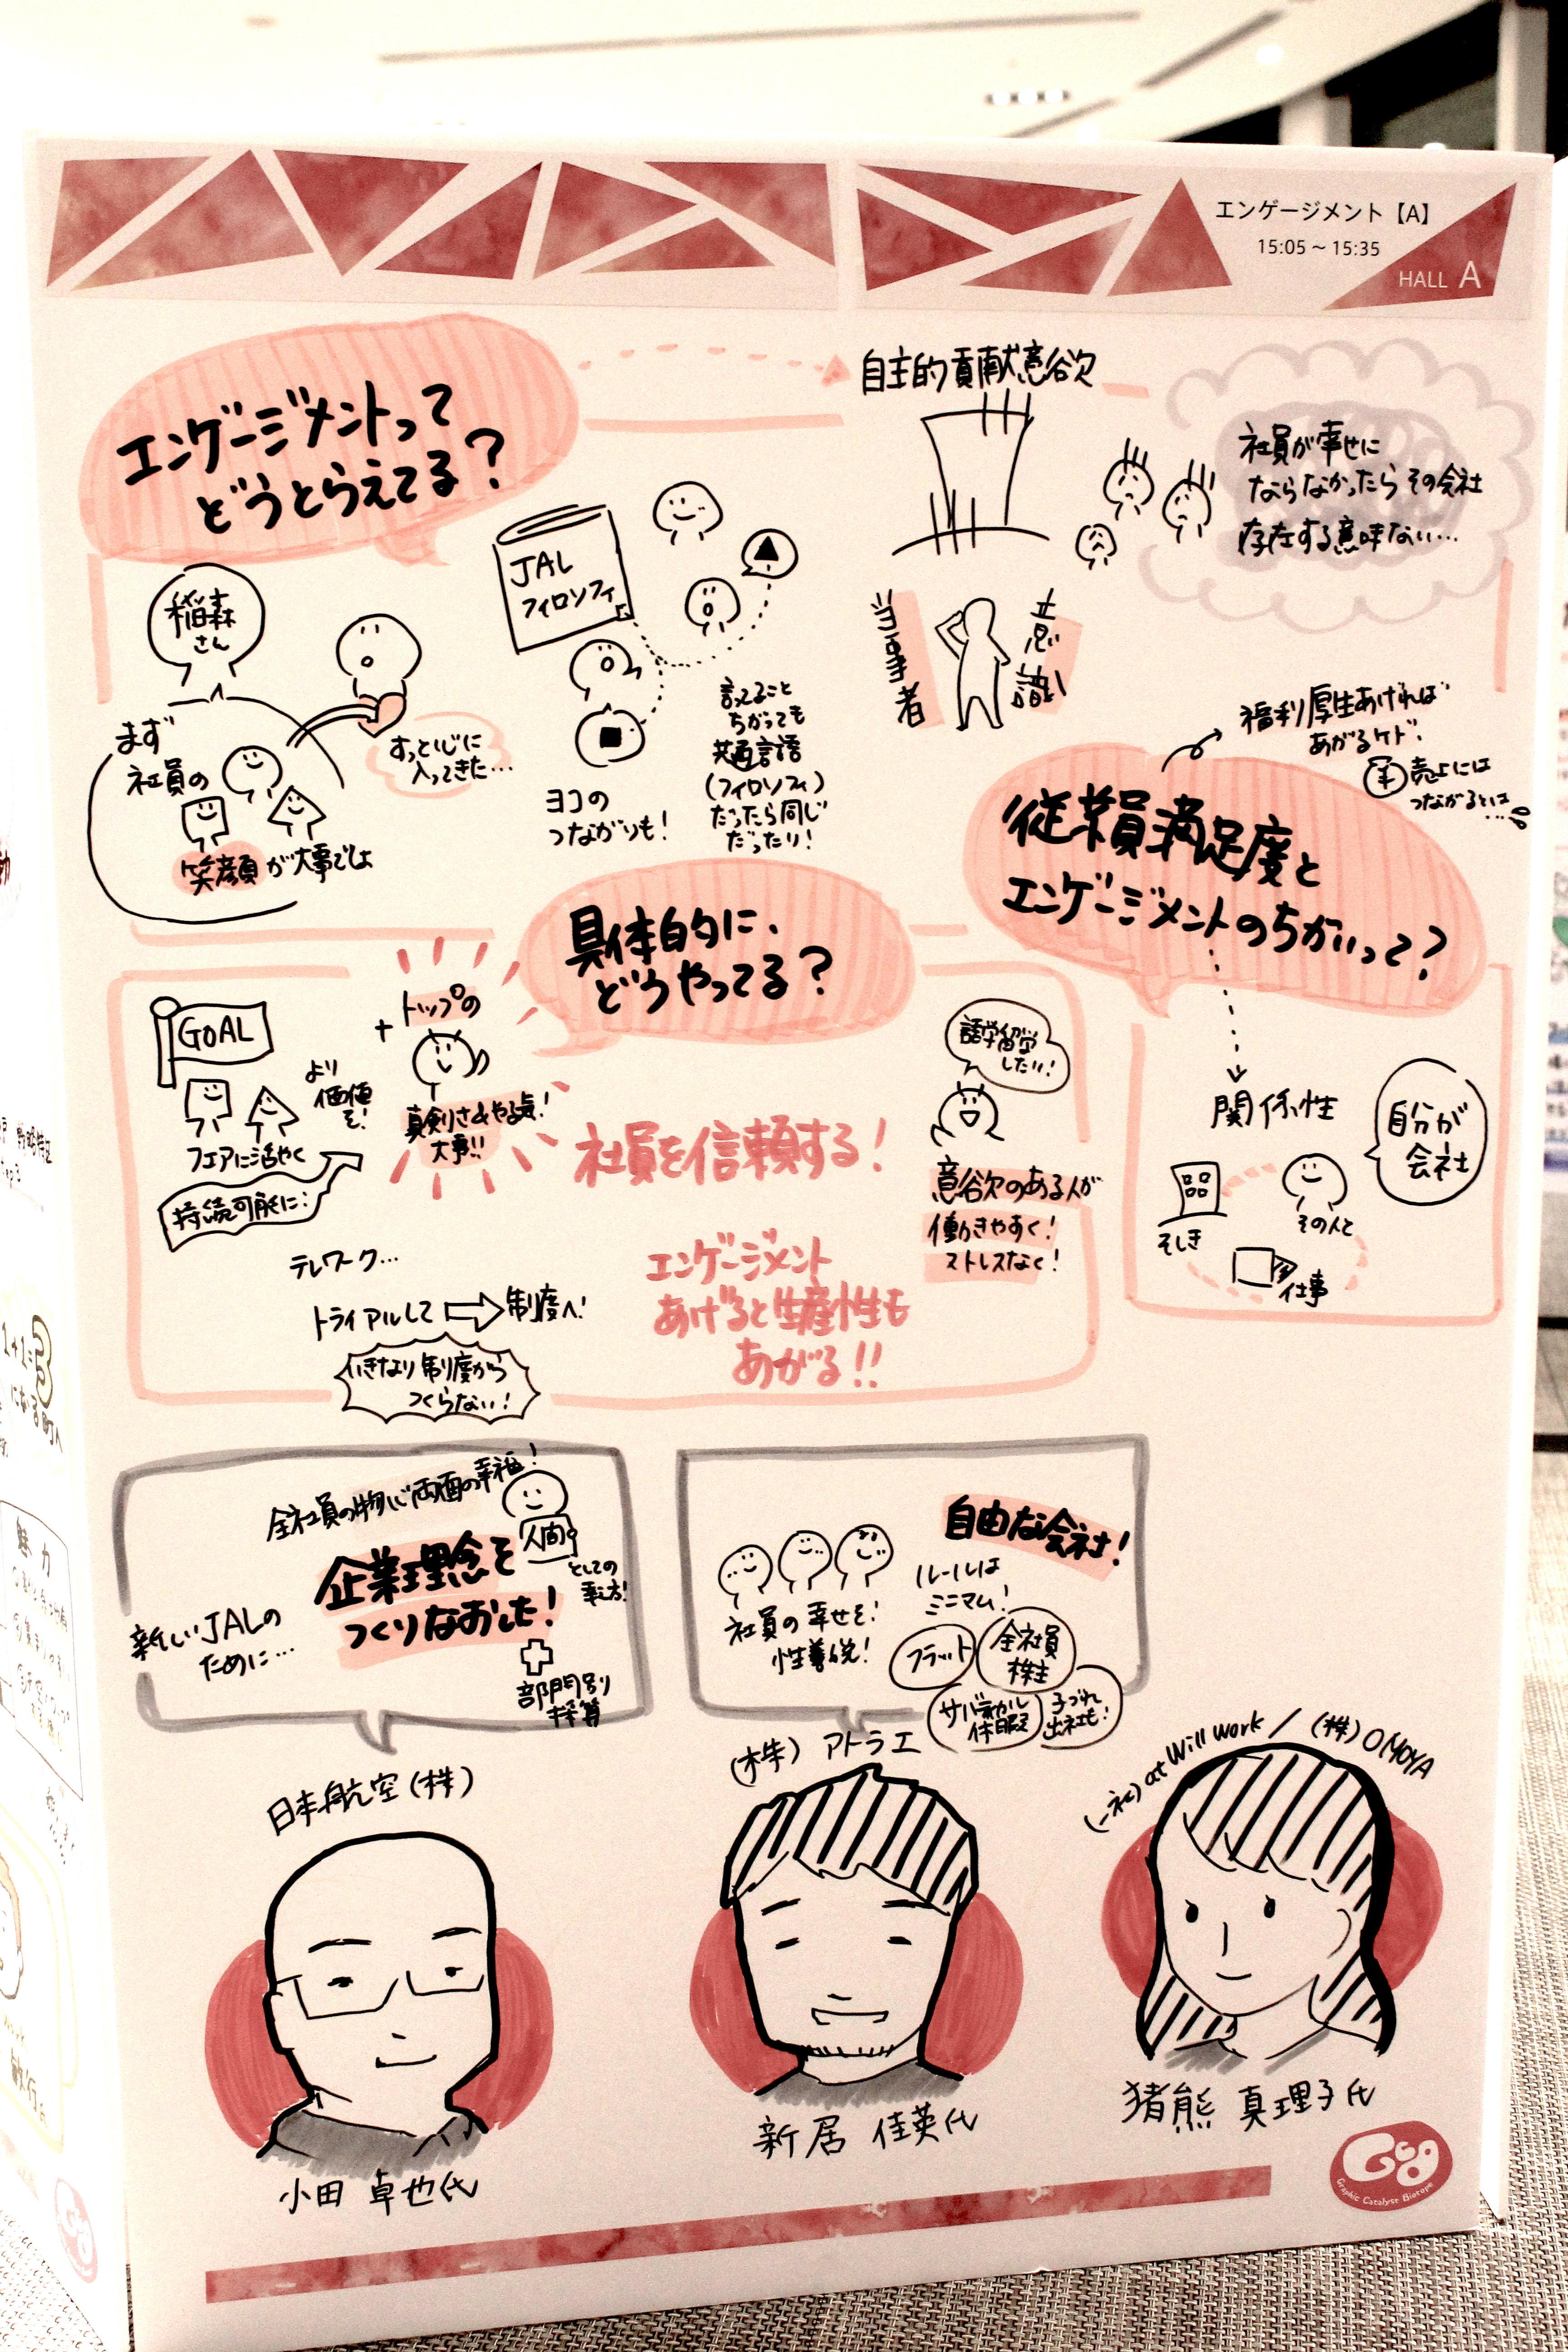 エンゲージメント【A】
15:05～15:35
HALL A
エンゲージメントって
どうとらえてる？
自主的貢献意欲
社員が幸せに
ならなかったら その会社
存在する意味ない…
稲森
さん
まず
社員の
笑顔が大事でしょ
すっと心に
入ってきた…
JAL
フィロソフィ
ヨコの
つながりも！
言えること
ちがっても
共通言語
(フィロソフィ)
だったら同じ
だったり！
当事者
意識
福利厚生あげれば
あがるケド、
¥売上には
つながるとは…
従業員満足度と
エンゲージメントのちがいって？
関係性
自分が
会社
そしき
その人と
仕事
具体的に、
どうやってる？
GOAL
フェアに活やく
より
価値
を！
持続可能に！
+
トップの
真剣さ&やる気！
大事!!
社員を信頼する！
語学留学
したい！
意欲のある人が
働きやすく！
ストレスなく！
テレワーク…
トライアルして
制度へ！
いきなり制度から
つくらない！
エンゲージメント
あげると生産性も
あがる!!
全社員の物心両面の幸福！
企業理念を
つくりなおした！
人間
としての
新しいJALの
ために…
部門別
採算
自由な会社！
ルールは
ミニマム！
社員の幸せを！
性善説！
フラット
全社員
株主
サバティカル
休暇
子づれ
出社も！
日本航空(株)
小田 卓也氏
(株) アトラエ
新居 佳英氏
(一社) at Will Work / (株) OMOYA
猪熊 真理子氏
GCB
Graphic Catalyst Biotope